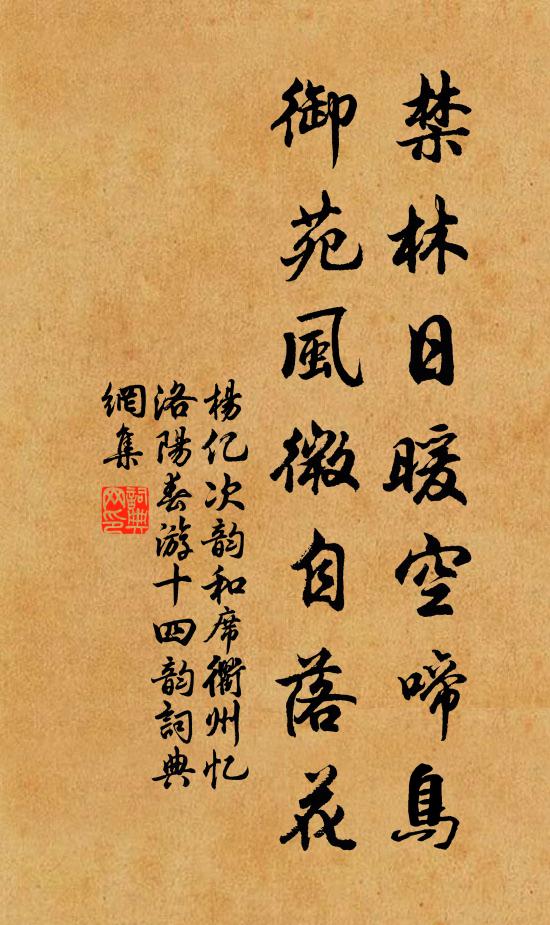 禁林日暖空啼鳥
御苑風微自落花
楊亿次韵和席衢州忆
洛陽春游十四韵詞典
網集
詞典
网印